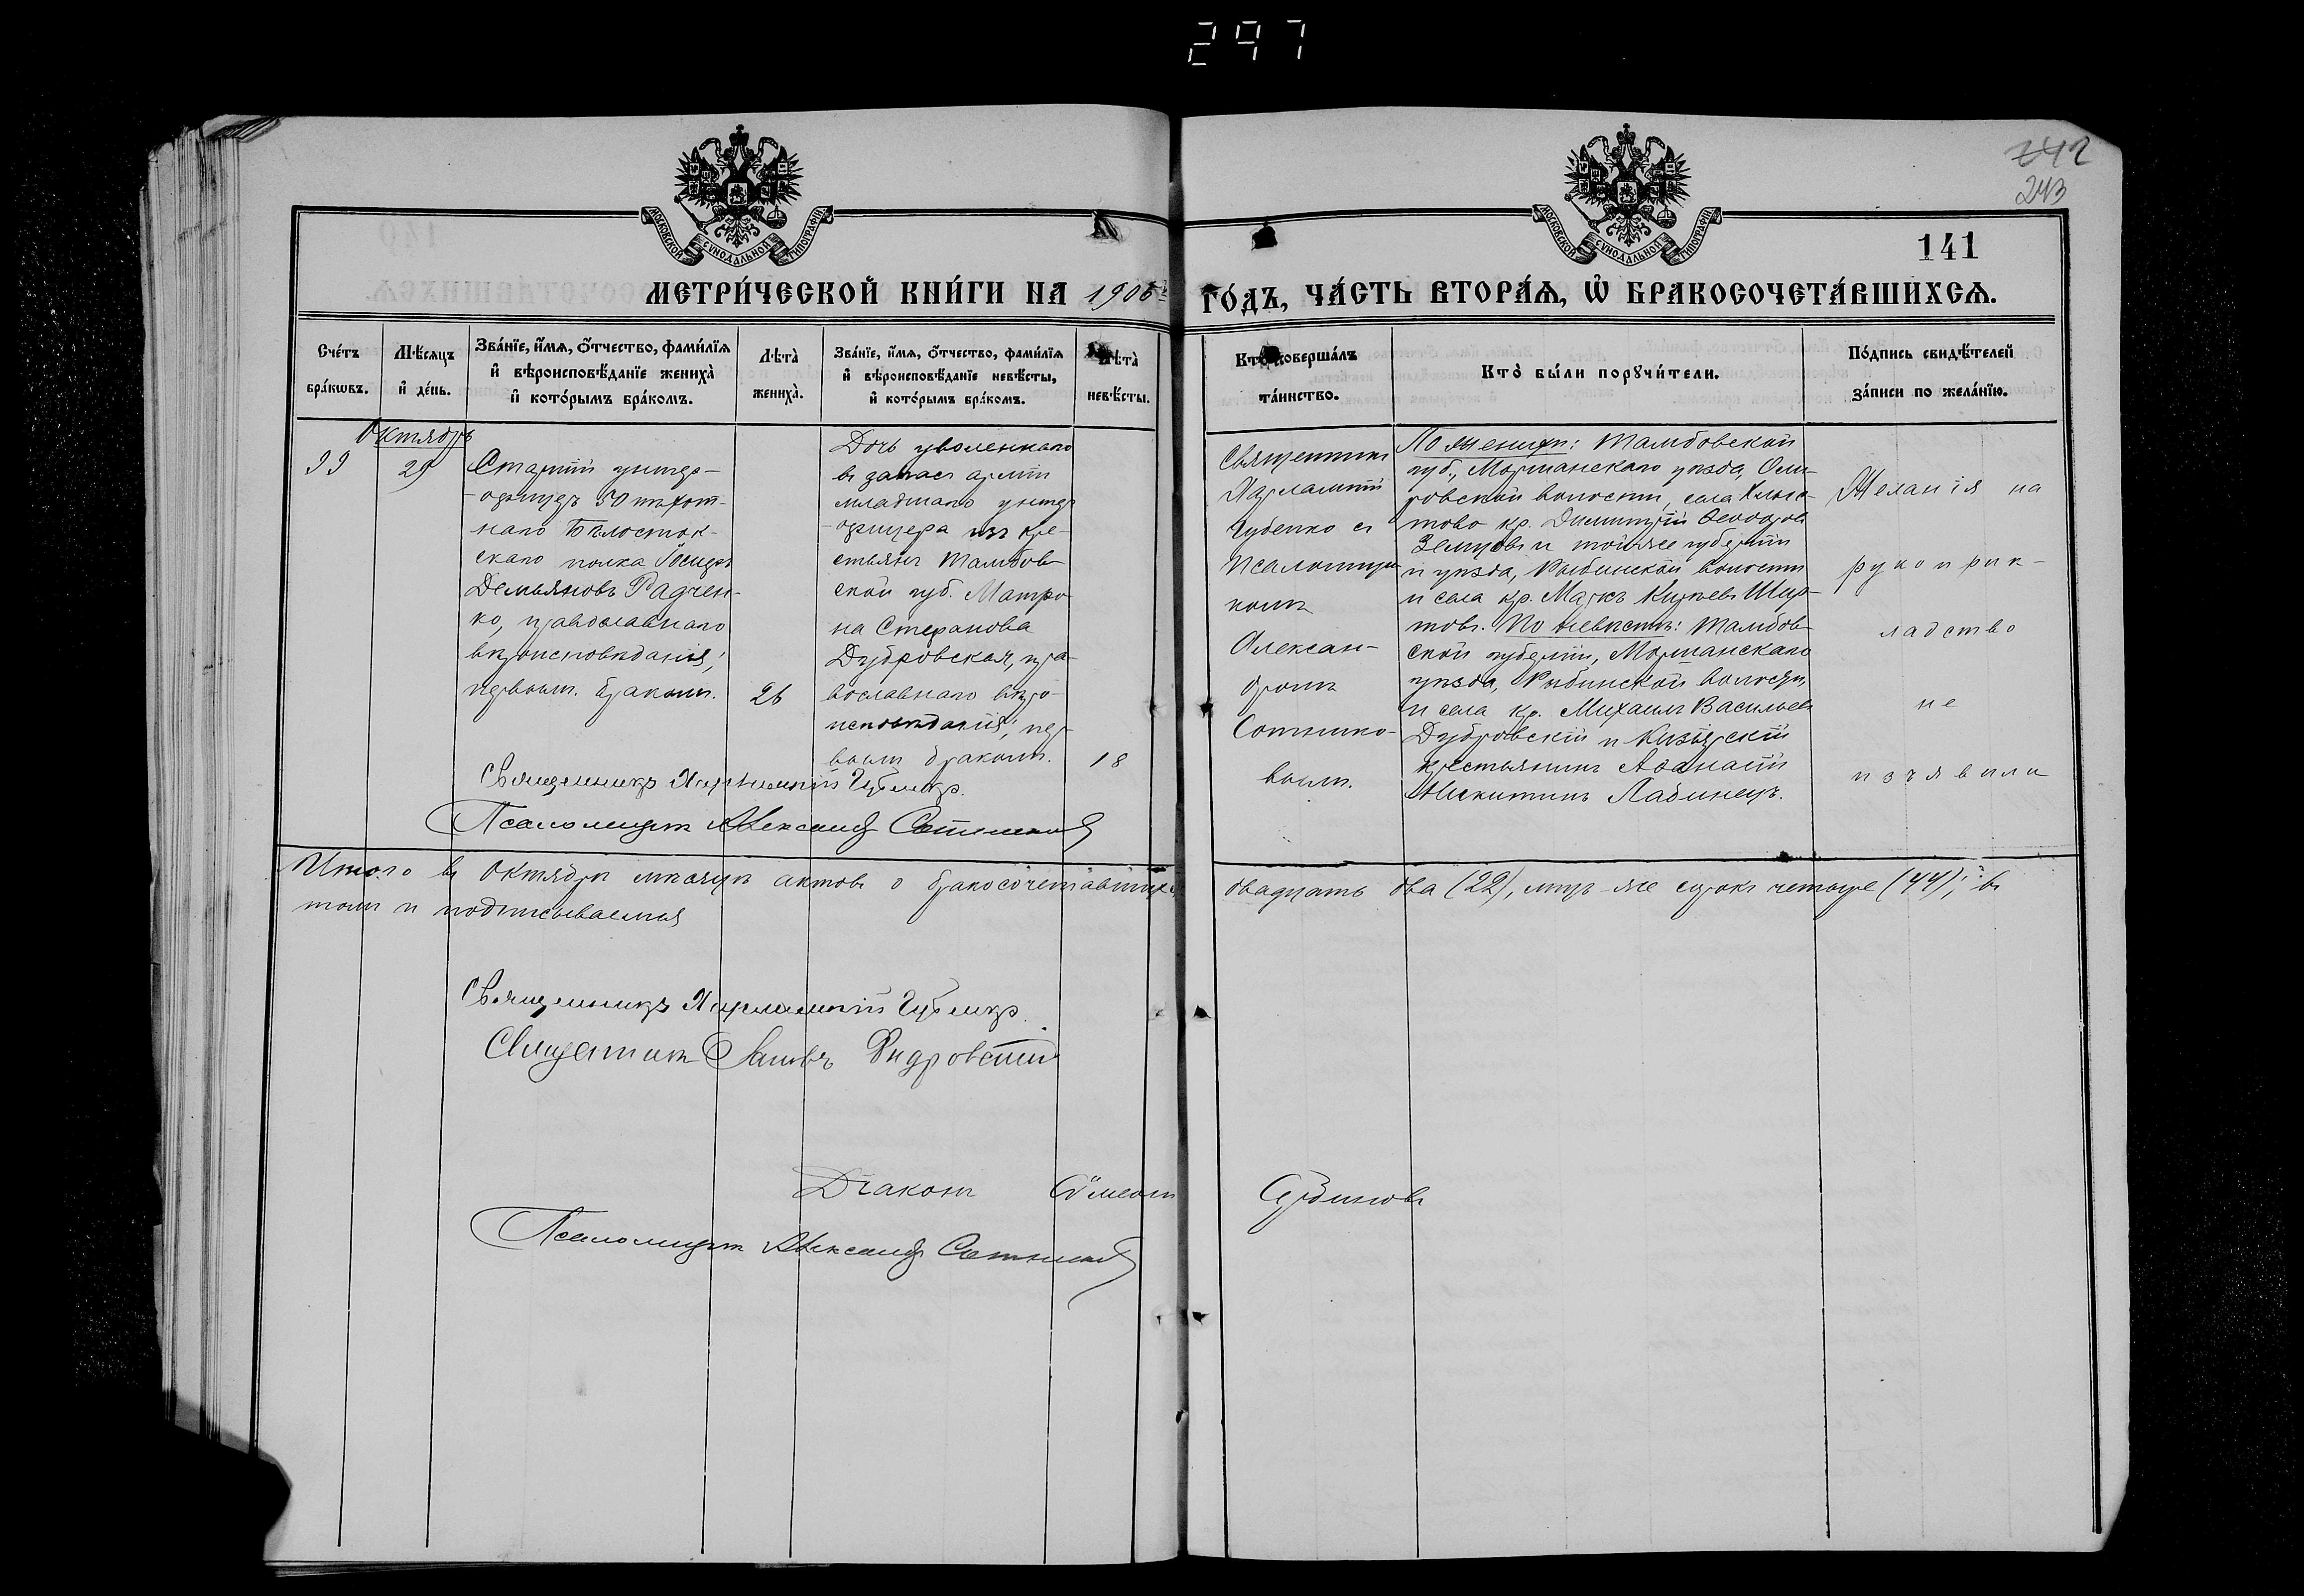 297
242
243
141
МОСКОВСКОЙ СѴНОДАЛЬНОЙ ТИПОГРАФІИ
МОСКОВСКОЙ СѴНОДАЛЬНОЙ ТИПОГРАФІИ
МЕТРИ́ЧЕСКОЙ КНИ́ГИ НА 1906
ГО́ДЪ, ЧА́СТЬ ВТОРА́Ѧ, Ѽ БРАКОСОЧЕТА́ВШИХСѦ.
Сче́тъ бра́кѡвъ.
Мѣ́сѧцъ и҆ де́нь.
Зва́нїе, и҆́мѧ, ѻ҆́тчество, фами́лїѧ
и҆ вѣроисповѣ́данїе жениха̀
и҆ кото́рымъ бра́комъ.
Лѣта̀ жениха̀.
Зва́нїе, и҆́мѧ, ѻ҆́тчество, фами́лїѧ
и҆ вѣроисповѣ́данїе невѣ́сты,
и҆ кото́рымъ бра́комъ.
Лѣта̀ невѣ́сты.
Кто̀ соверша́лъ та́инство.
Кто̀ бы́ли порꙋчи́тели.
По́дпись свидѣ́телей
за́писи по жела́нїю.
Октябрь
99
29
Старшій унтеръ-
-офицеръ 50 пѣхот-
наго Бѣлосток-
скаго полка Іосифъ
Демьяновъ Радчен-
ко, православнаго
вѣроисповѣданія;
первымъ бракомъ.
26
Дочь уволеннаго
въ запасъ арміи
младшаго унтеръ
-офицера изъ кре-
стьянъ Тамбов-
ской губ. Матро-
на Стефанова
Дубровская, пра-
вославнаго вѣро-
исповѣданія; пер-
вымъ бракомъ.
18
Священникъ
Харлампій
Губенко съ
псаломщи-
комъ
Алексан-
дромъ
Сотнико-
вымъ.
По женихѣ: Тамбовской
губ., Моршанскаго уѣзда,
волости, села
кр. Димитрій Ѳеодоровъ
Земцовъ и тойже губерніи
и уѣзда, Рыбинской волости
и села кр. Маркъ
По невѣстѣ: Тамбов-
ской губерніи, Моршанскаго
уѣзда, Рыбинской волости,
и села кр. Михаилъ Васильевъ
Дубровскій и
крестьянинъ Аѳанасій
Никитинъ Лабинецъ.
Желанія на
рукоприк-
ладство
не
изъявили
Священникъ Харлампій Губенко.
Псаломщикъ Александръ Сотниковъ
Итого въ Октябрѣ мѣсяцѣ актовъ о бракосочетавшихся двадцать два (22), лицъ-же сорокъ четыре (44); въ
томъ и подписываемся
Священникъ Харлампій Губенко.
Священникъ
Діаконъ Сѵмеонъ
Псаломщикъ Александръ Сотниковъ